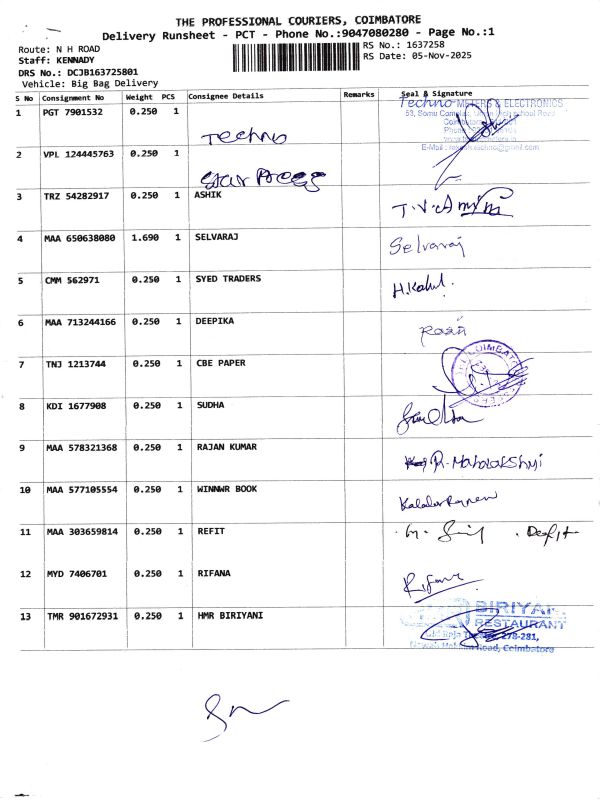 THE PROFESSIONAL COURIERS, COIMBATORE
Delivery Runsheet - PCT - Phone No.:9047080280 - Page No.:1
Route: N H ROAD
RS No.: 1637258
Staff: KENNADY
RS Date: 05-Nov-2025
DRS No.: DCJB163725801
Vehicle: Big Bag Delivery
S No Consignment No Weight PCS Consignee Details Remarks Seal & Signature
1 PGT 7901532 0.250 1 Techno
Techno METERS & ELECTRONICS
Coimbatore
2 VPL 124445763 0.250 1 Star Press
3 TRZ 54282917 0.250 1 ASHIK
4 MAA 650638080 1.690 1 SELVARAJ Selvaraj
5 CMM 562971 0.250 1 SYED TRADERS
6 MAA 713244166 0.250 1 DEEPIKA
7 TNJ 1213744 0.250 1 CBE PAPER
8 KDI 1677908 0.250 1 SUDHA
9 MAA 578321368 0.250 1 RAJAN KUMAR R. Mahalakshmi
10 MAA 577105554 0.250 1 WINNWR BOOK
11 MAA 303659814 0.250 1 REFIT
12 MYD 7406701 0.250 1 RIFANA Rifana
13 TMR 901672931 0.250 1 HMR BIRIYANI
BIRIYANI
RESTAURANT
278-281,
Road, Coimbatore